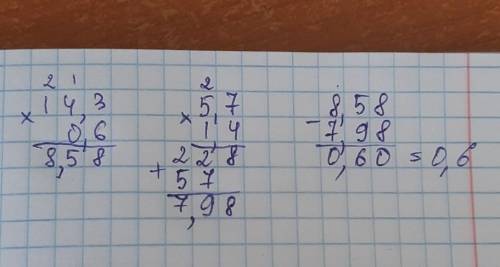 2 1
× 14,3
0,6
8,58
2
× 5,7
1,4
+ 228
57
7,98
- 8,58
7,98
0,60 = 0,6